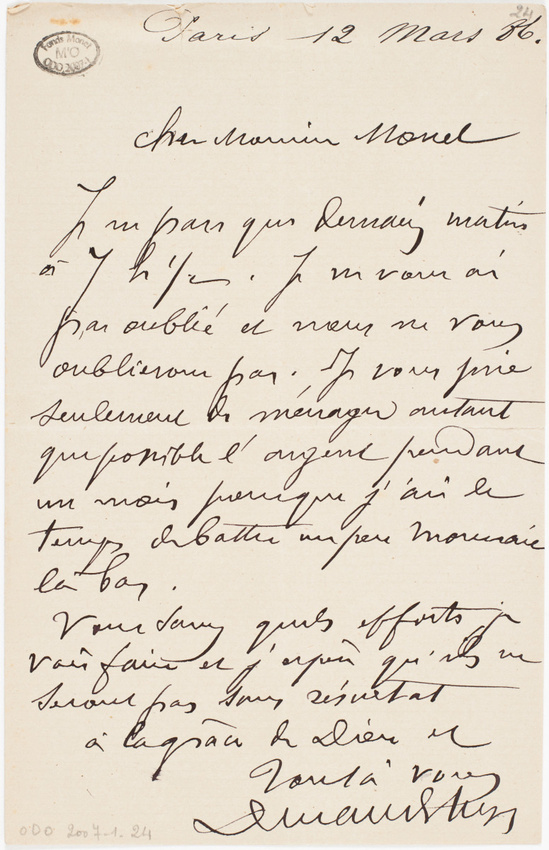 24
Paris 12 Mars 86.
Fonds Monet
M'O
ODO 2007-1
cher Monsieur Monet
Je ne pars que demain matin
à 7 h ½. Je ne vous ai
pas oublié et nous ne vous
oublierons pas. Je vous prie
seulement de ménager autant
que possible l'argent pendant
un mois pour que j'aie le
temps de battre un peu monnaie
là bas.
Vous savez quels efforts je
vais faire et j'espère qu'ils ne
seront pas sans résultat
à la grâce de Dieu et
Tout à vous
Durand Ruel
ODO 2007-1-24